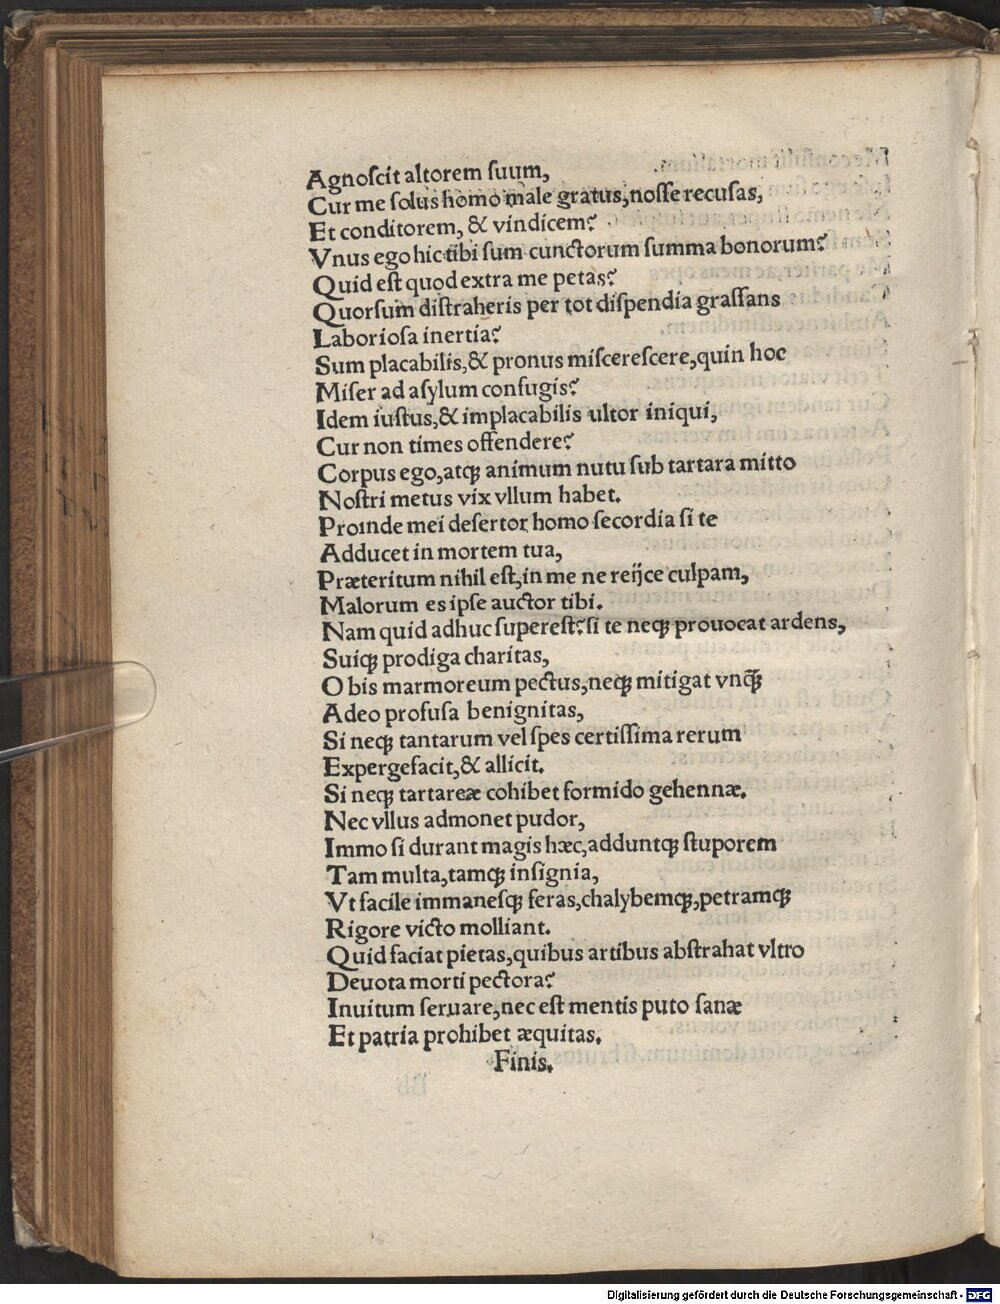 Agnoſcit altorem ſuum,
Cur me ſolus homo male gratus, noſſe recuſas,
Et conditorem, & vindicem?
Vnus ego hic tibi ſum cunctorum ſumma bonorum?
Quid eſt quod extra me petas?
Quorſum diſtraheris per tot diſpendia graſſans
Laborioſa inertia?
Sum placabilis, & pronus miſcereſcere, quin hoc
Miſer ad aſylum confugis?
Idem iuſtus, & implacabilis ultor iniqui,
Cur non times offendere?
Corpus ego, atqꝫ animum nutu ſub tartara mitto
Noſtri metus vix vllum habet.
Proinde mei deſertor homo ſecordia ſi te
Adducet in mortem tua,
Præteritum nihil eſt, in me ne reijce culpam,
Malorum es ipſe auctor tibi.
Nam quid adhuc ſupereſt? ſi te neqꝫ prouocat ardens,
Suiqꝫ prodiga charitas,
O bis marmoreum pectus, neqꝫ mitigat vnqꝫ̃
Adeo profuſa benignitas,
Si neqꝫ tantarum vel ſpes certiſſima rerum
Expergefacit, & allicit.
Si neqꝫ tartareæ cohibet formido gehennæ.
Nec vllus admonet pudor,
Immo ſi durant magis hæc, adduntqꝫ ſtuporem
Tam multa, tamqꝫ inſignia,
Vt facile immaneſqꝫ feras, chalybemqꝫ, petramqꝫ
Rigore victo molliant.
Quid faciat pietas, quibus artibus abſtrahat vltro
Deuota morti pectora?
Inuitum ſeruare, nec eſt mentis puto ſanæ
Et patria prohibet æquitas.
Finis.
Digitalisierung gefördert durch die Deutsche Forschungsgemeinschaft - DFG